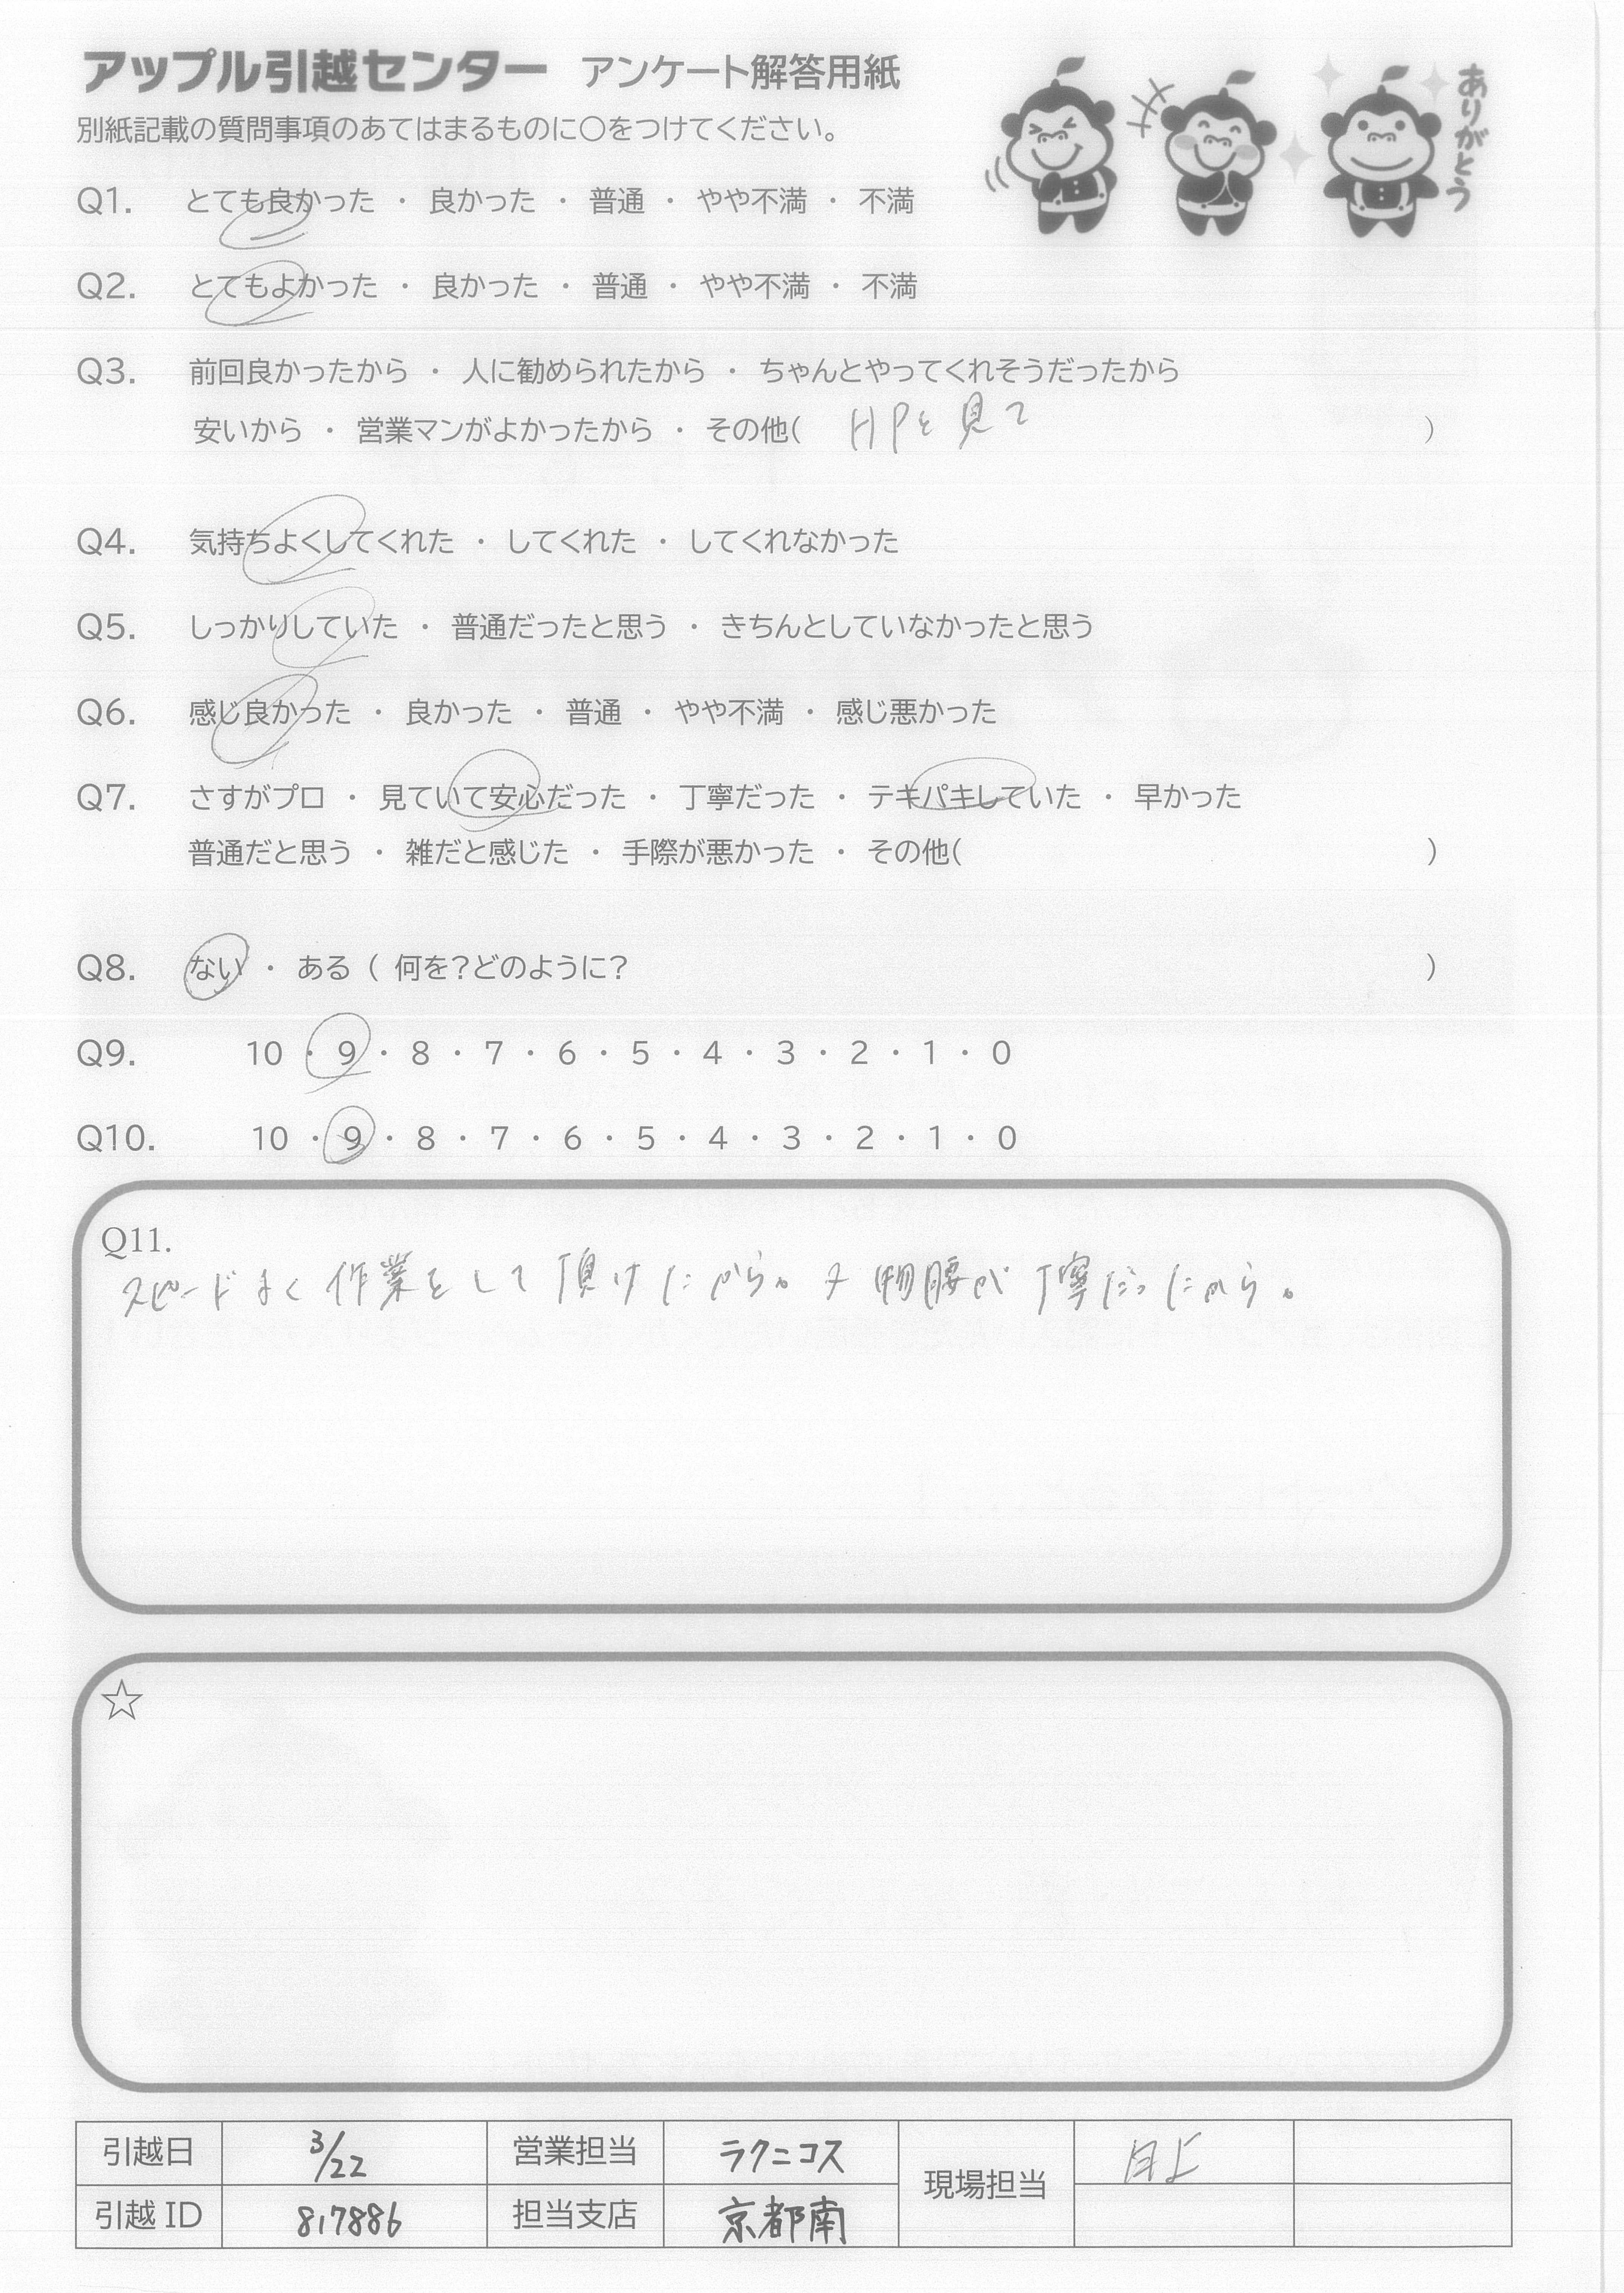 アップル引越センター アンケート解答用紙
ありがとう
別紙記載の質問事項のあてはまるものに〇をつけてください。
Q1. とても良かった ・ 良かった ・ 普通 ・ やや不満 ・ 不満
Q2. とてもよかった ・ 良かった ・ 普通 ・ やや不満 ・ 不満
Q3. 前回良かったから ・ 人に勧められたから ・ ちゃんとやってくれそうだったから
安いから ・ 営業マンがよかったから ・ その他( HPを見て )
Q4. 気持ちよくしてくれた ・ してくれた ・ してくれなかった
Q5. しっかりしていた ・ 普通だったと思う ・ きちんとしていなかったと思う
Q6. 感じ良かった ・ 良かった ・ 普通 ・ やや不満 ・ 感じ悪かった
Q7. さすがプロ ・ 見ていて安心だった ・ 丁寧だった ・ テキパキしていた ・ 早かった
普通だと思う ・ 雑だと感じた ・ 手際が悪かった ・ その他( )
Q8. ない ・ ある ( 何を?どのように? )
Q9. 10 ・ 9 ・ 8 ・ 7 ・ 6 ・ 5 ・ 4 ・ 3 ・ 2 ・ 1 ・ 0
Q10. 10 ・ 9 ・ 8 ・ 7 ・ 6 ・ 5 ・ 4 ・ 3 ・ 2 ・ 1 ・ 0
Q11.
スピードよく作業をして頂けたから。又物腰が丁寧だったから。
☆
引越日 3/22 営業担当 ラクニコス 現場担当
引越 ID 817886 担当支店 京都南